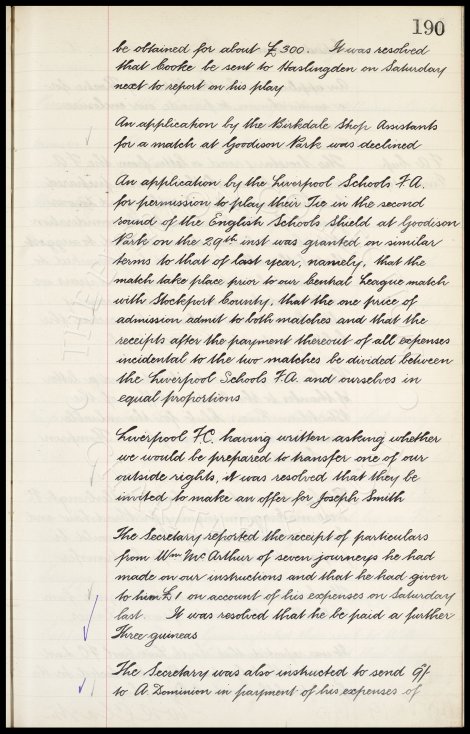 190
be obtained for about £300. It was resolved
that Cooke be sent to Haslingden on Saturday
next to report on his play
An application by the Birkdale Shop Assistants
for a match at Goodison Park was declined
An application by the Liverpool Schools F.A.
for permission to play their Tie in the second
round of the English Schools Shield at Goodison
Park on the 29th inst was granted on similar
terms to that of last year, namely, that the
match take place prior to our Central League match
with Stockport County, that the one price of
admission admit to both matches and that the
receipts after the payment thereout of all expenses
incidental to the two matches be divided between
the Liverpool Schools F.A. and ourselves in
equal proportions
Liverpool F.C. having written asking whether
we would be prepared to transfer one of our
outside rights, it was resolved that they be
invited to make an offer for Joseph Smith
The Secretary reported the receipt of particulars
from Wm McArthur of seven journeys he had
made on our instructions and that he had given
to him £1 on account of his expenses on Saturday
last It was resolved that he be paid a further
Three guineas
The Secretary was also instructed to send 9/-
to A. Dominion in payment of his expenses of